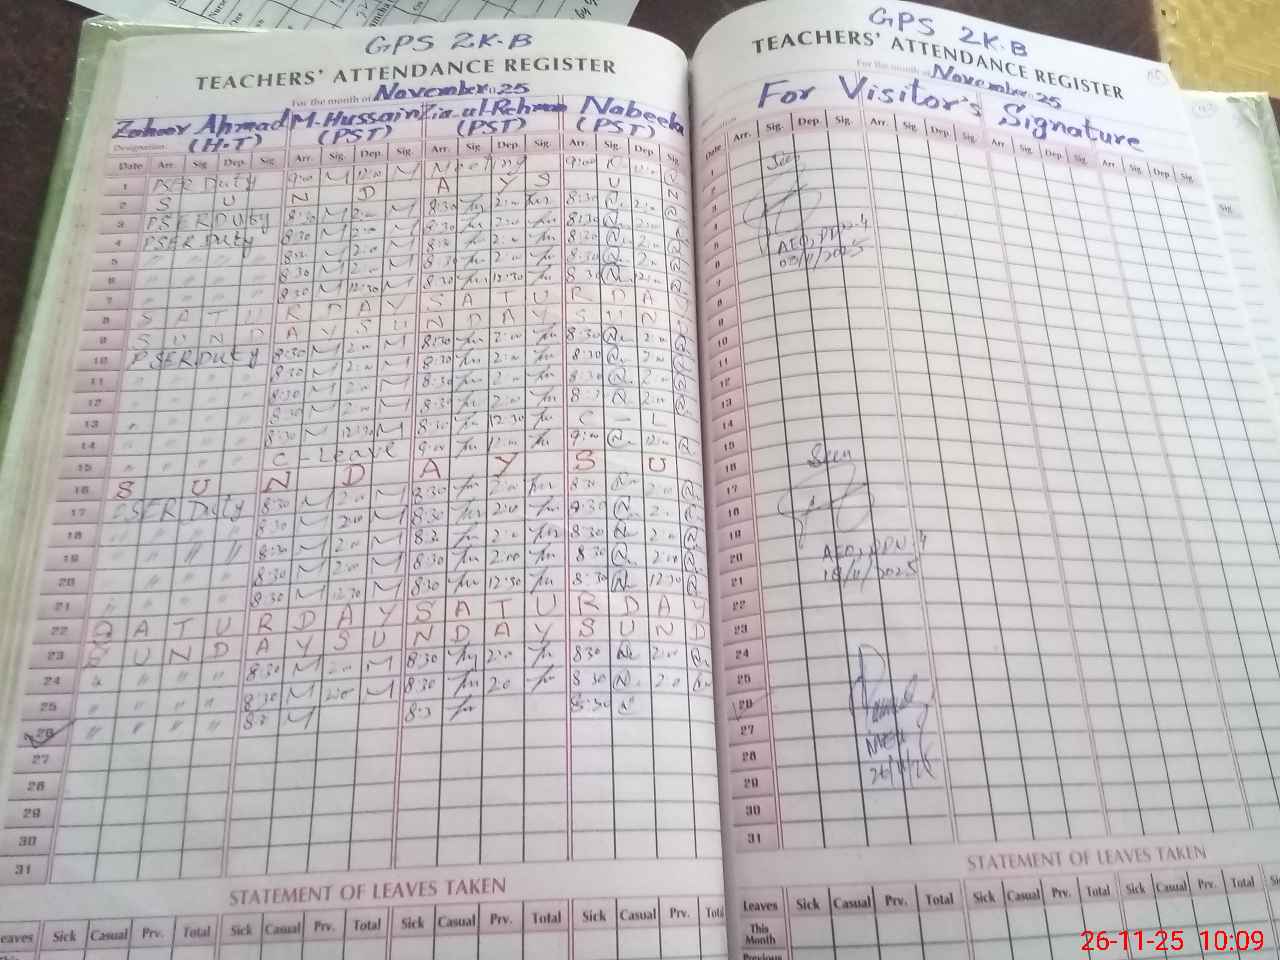 GPS 2K.B
TEACHERS' ATTENDANCE REGISTER
For the month of November 25
Zahoor Ahmad M. Hussain Zia-ul-Rehman Nabeela
(H.T) (PST) (PST) (PST)
Designation
Date Arr. Sig. Dep. Sig. Arr. Sig. Dep. Sig. Arr. Sig. Dep. Sig. Arr. Sig. Dep. Sig.
1 PSER Duty 9:00 M 12:00 M Meeting 9:00
2 S U N D A Y S U N
3 PSER Duty 8:30 M 2:00 M 8:30 2:00 8:30 2:00
4 PSER Duty 8:30 M 2:00 M 8:30 2:00 8:30 2:00
5 " " " " 8:30 M 2:00 M 8:30 2:00 8:30 2:00
6 " " " " 8:30 M 2:00 M 8:30 2:00 8:30 2:00
7 " " " " 8:30 M 12:30 M 8:30 12:30 8:30 12:00
8 S A T U R D A Y S A T U R D A Y
9 S U N D A Y S U N D A Y S U N D
10 PSER Duty 8:30 M 2:00 M 8:30 2:00 8:30 2:00
11 " " " " 8:30 M 2:00 M 8:30 2:00 8:30 2:00
12 " " " " 8:30 M 2:00 M 8:30 2:00 8:30 2:00
13 " " " " 8:30 M 2:00 M 8:30 2:00 8:30 2:00
14 " " " " 8:30 M 12:30 M 8:30 12:30 C - L
15 " " " " C - Leave 9:00 12:00 9:00 12:00
16 S U N D A Y S U
17 PSER Duty 8:30 M 2:00 M 8:30 2:00 8:30 2:00
18 " " " " 8:30 M 2:00 M 8:30 2:00 8:30 2:00
19 " " " " 8:30 M 2:00 M 8:30 2:00 8:30 2:00
20 " " " " 8:30 M 2:00 M 8:30 2:00 8:30 2:00
21 " " " " 8:30 M 12:30 M 8:30 12:30 8:30 12:30
22 S A T U R D A Y S A T U R D A Y
23 S U N D A Y S U N D A Y S U N D
24 " " " " 8:30 M 2:00 M 8:30 2:00 8:30 2:00
25 " " " " 8:30 M 2:00 M 8:30 2:0 8:30 2:0
26 " " " " 8:3 M 8:3 8:30
27
28
29
30
31
STATEMENT OF LEAVES TAKEN
Leaves Sick Casual Prv. Total Sick Casual Prv. Total Sick Casual Prv. Total Sick Casual Prv. Total
GPS 2K.B
TEACHERS' ATTENDANCE REGISTER
For the month of November 25
For Visitor's Signature
Date Arr. Sig. Dep. Sig. Arr. Sig. Dep. Sig. Arr. Sig. Dep. Sig. Arr. Sig. Dep. Sig.
1 Seen
2
3
4
5 AEO,
6 03/11/2025
7
8
9
10
11
12
13
14
15
16 Seen
17
18
19
20 AEO,
21 18/11/2025
22
23
24
25
26
27 MEA
28 26/11/25
29
30
31
STATEMENT OF LEAVES TAKEN
Leaves Sick Casual Prv. Total Sick Casual Prv. Total Sick Casual Prv. Total
This
Month
Previous
26-11-25 10:09